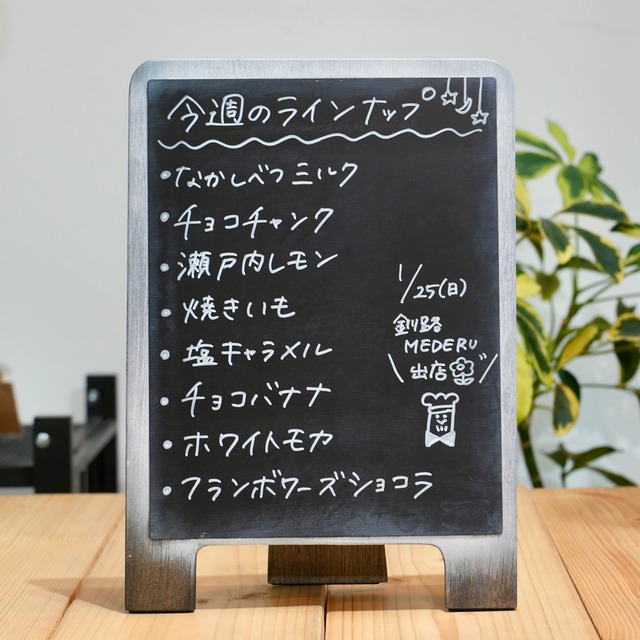 今週のラインナップ
・なかしべつミルク
・チョコチャンク
・瀬戸内レモン
・焼きいも
・塩キャラメル
・チョコバナナ
・ホワイトモカ
・フランボワーズショコラ
1/25(日)
釧路
MEDERU
\出店/